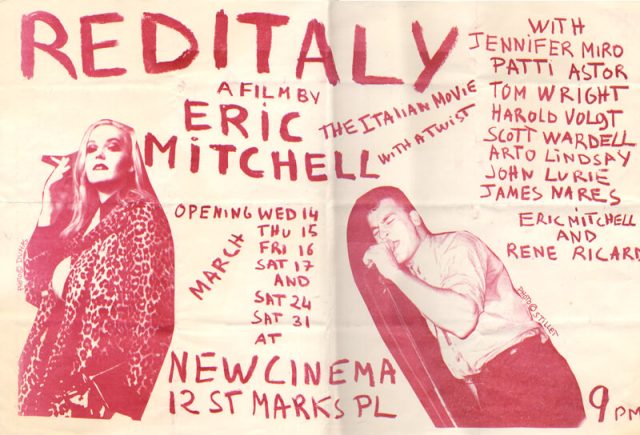 RED ITALY
A FILM BY
ERIC
MITCHELL
THE ITALIAN MOVIE
WITH A TWIST
WITH
JENNIFER MIRO
PATTI ASTOR
TOM WRIGHT
HAROLD VOLGT
SCOTT WARDELL
ARTO LINDSAY
JOHN LURIE
JAMES NARES
ERIC MITCHELL
AND
RENE RICARD
OPENING WED 14
THU 15
MARCH
FRI 16
SAT 17
AND
SAT 24
SAT 31
AT
NEW CINEMA
12 ST MARKS PL
9 PM
PHOTO ©
PHOTO © STILLET